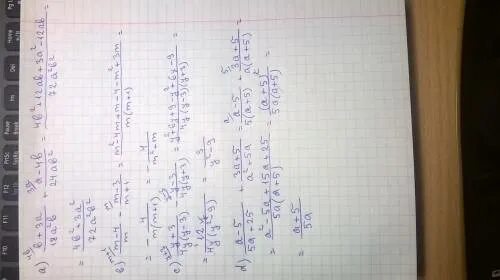 a) (b+3a)/(18a²b) + (a-4b)/(24ab²) = (4b²+12ab+3a²-12ab)/(72a²b²) =
= (4b²+3a²)/(72a²b²)
b) (m-4)/m - (m-3)/(m+1) = (m²-4m+m-4-m²+3m)/(m(m+1)) =
= -4/(m(m+1)) = -4/(m²+m)
c) (y+3)/(4y(y-3)) - (y-3)/(4y(y+3)) =
d) (a-5)/(5a+25) + (3a+5)/(a²+5a) = (a-5)/(5(a+5)) + (3a+5)/(a(a+5)) =
= (a²-5a+15a+25)/(5a(a+5)) = (a+5)²/(5a(a+5)) =
= (a+5)/(5a)